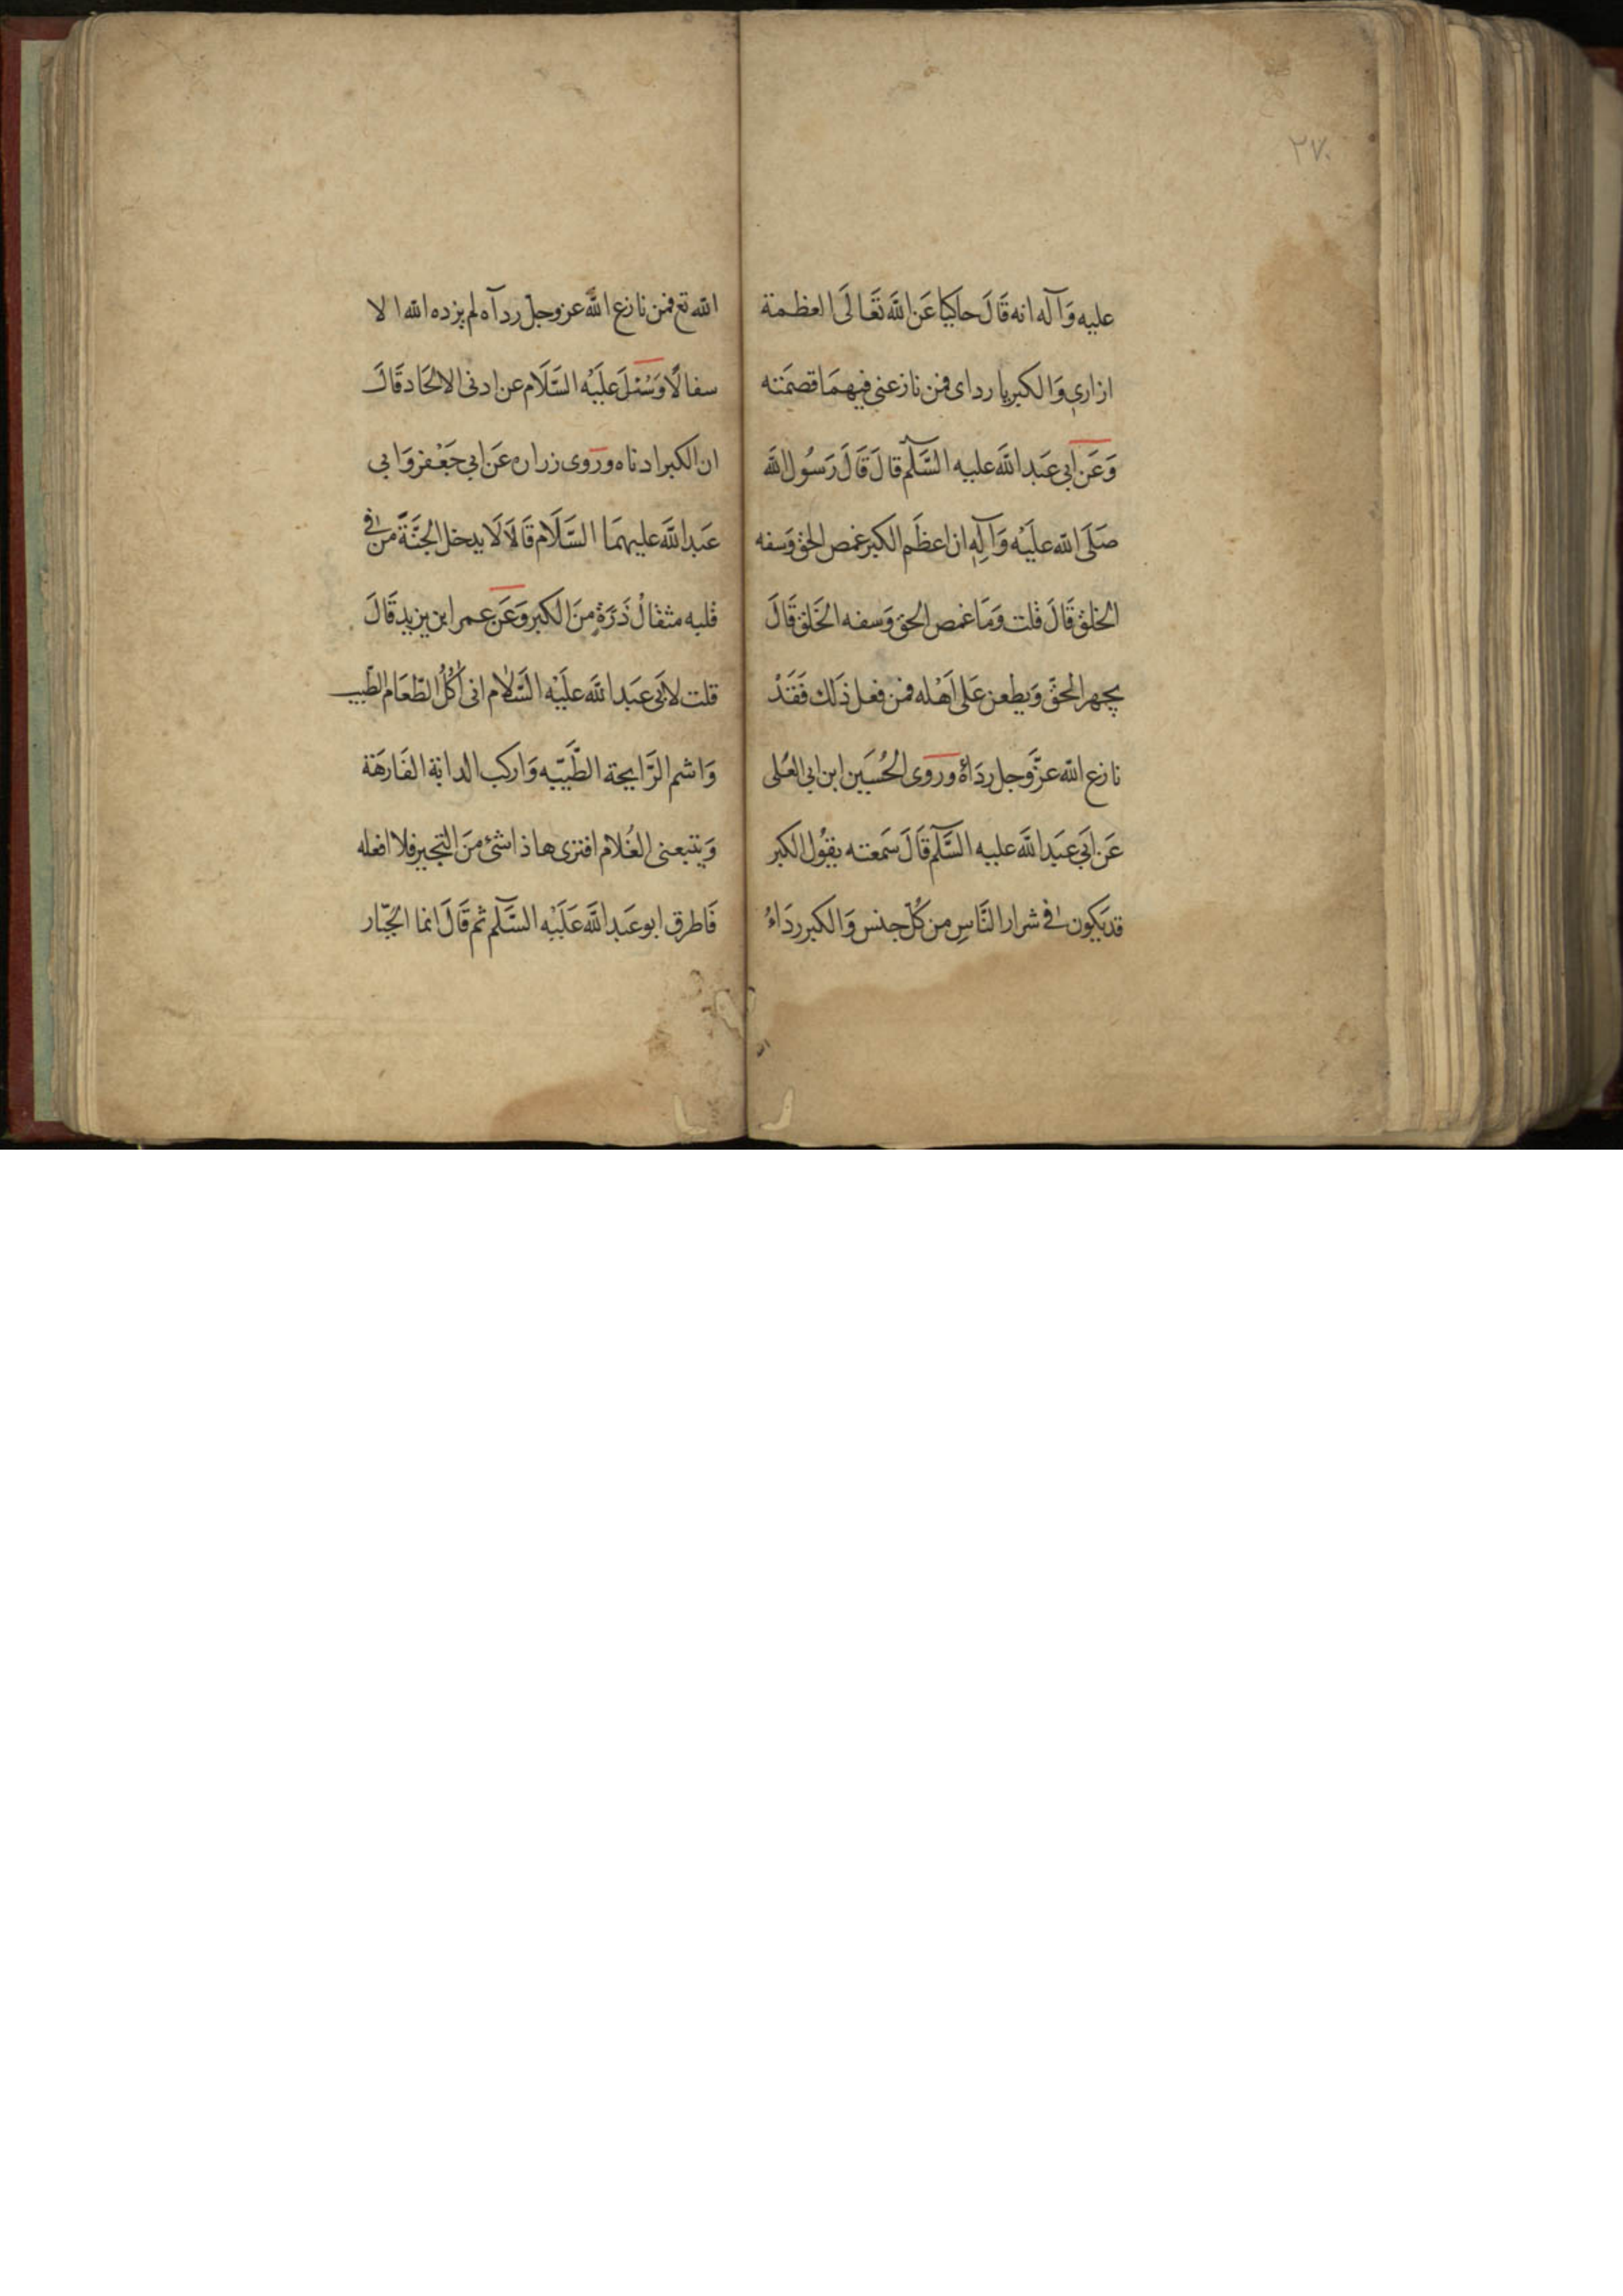 ٢٧٠
عليه وَآله انه قَالَ حاكيا عَن اللَّه تَعَالَى العظمة
ازارى وَالكبريا رداى فمن نازعنى فيهمَا قصمَته
وَعَن ابى عَبد اللَّه عليه السَّلم قالَ قَالَ رَسُول اللَّه
صَلَى الله علَيْه وَآلِه ان اعظَم الكبر غمص الحق وَسفه
الخلق قَالَ قلت وَمَا غمص الحق وَسفه الخَلق قَالَ
يجهر الحقّ وَيطعن عَلى اَهْله فمن فعل ذَلك فَقَدْ
نازع الله عزّوَجل ردَاءهُ وروى الحُسَين ابن ابى العُلى
عَن ابَى عَبَد اللَّه عليه السَّلم قَالَ سَمعته يقُول الكبر
قد يَكون فى شرار النَّاسِ من كُلّ جنس وَالكبر ردَاءُ
الله تع فمن نازع اللَّه عز وجلّ ردآه لم يزده الله الا
سفالًا وَسُئلَ علَيْه السَّلَام عن ادنى الالحَاد قَالَ
ان الكبر ادناه وروى زراره عَن ابي جَعْفر وَابى
عَبد اللَّه عليهمَا السَّلَام قَالَا لَا يدخل الجَنَّةَ من فى
قلبه مثقالُ ذَرَةٍ منَ الكبر وَعَن عمر ابن يزيد قَالَ
قلت لابَى عَبَد اللَّه علَيْه السَّلام انى آكُلُ الطّعَام الطّيب
وَاشم الرَّايحة الطَّيّبه وَاركب الدابة الفَارهَة
وَيتبعنى الغُلام افترى هاذا شئ منَ التجبر فلا افعله
فَاطرق ابو عَبد اللَّه عَلَيْه السَّلم ثم قَالَ انما الجّبار